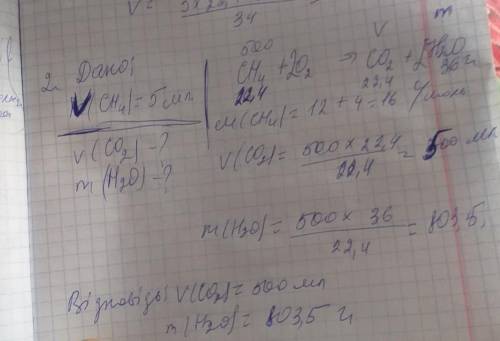 34
2. Дано:
V(CH₄) = 5 мл
V(CO₂) - ?
m(H₂O) - ?
500 V m
CH₄ + 2O₂ ⇒ CO₂ + 2H₂O
22,4 22,4 36 г
M(CH₄) = 12 + 4 = 16 г/моль
V(CO₂) = 500 × 22,4 / 22,4 = 500 мл
m(H₂O) = 500 × 36 / 22,4 = 803,5
Відповідь: V(CO₂) = 500 мл
m(H₂O) = 803,5 г